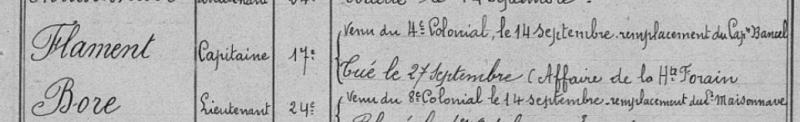 Flament Capitaine 17e Venu du 4e Colonial, le 14 Septembre. remplacement du Capne Bancel
Tué le 27 Septembre (Affaire de la Hte Forain
Bore Lieutenant 24e Venu du 8e Colonial le 14 Septembre. remplacement du Lt Maisonnave